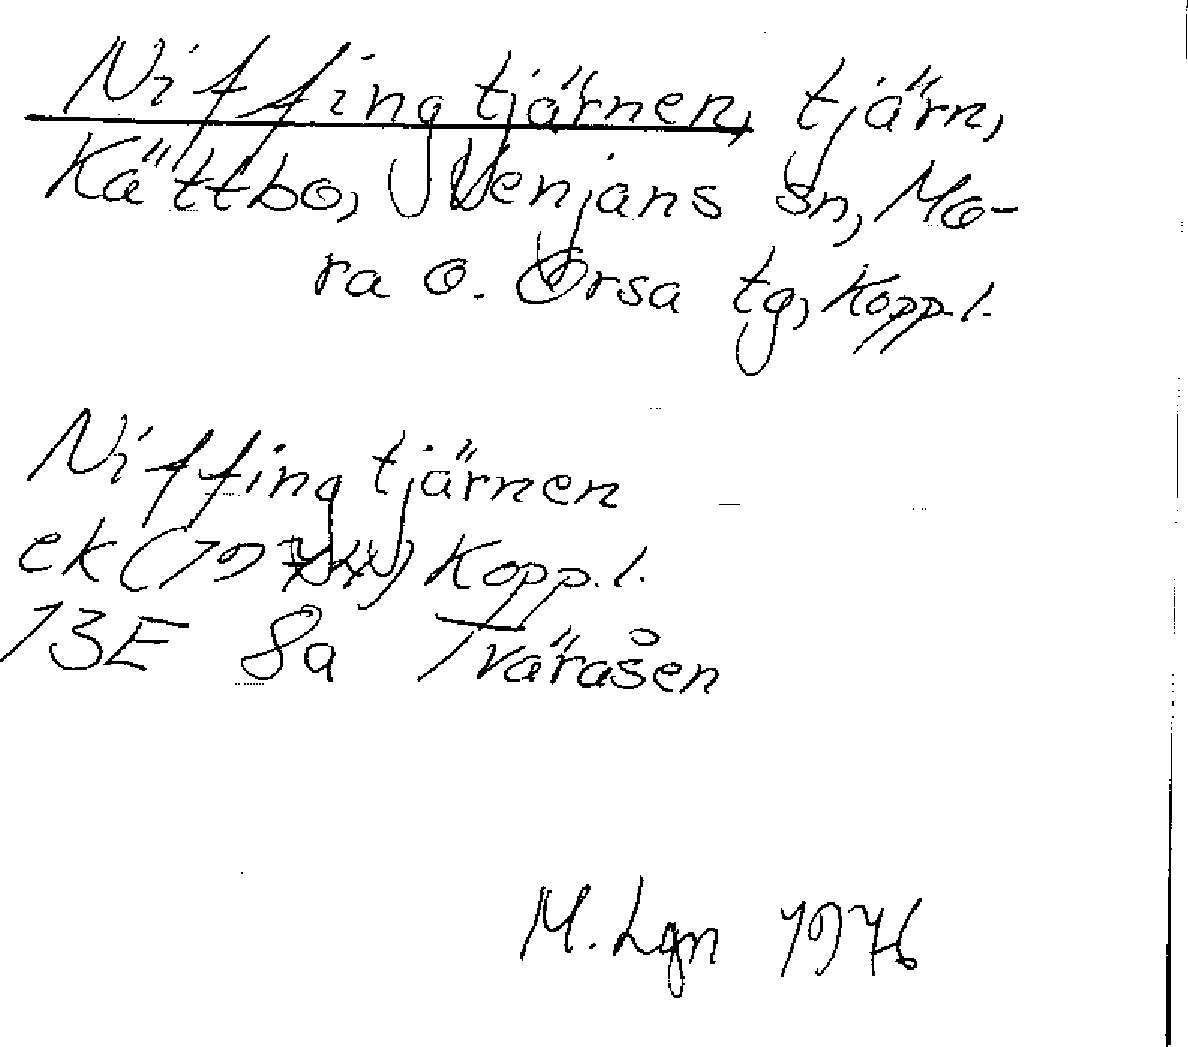 Niffingtjärnen, tjärn,
Kättbo, Venjans sn, Mo-
ra o. Orsa tg, Kopp. l.
Niffingtjärnen
ek (1974) Kopp. l.
13E 8a Tväråsen
M. Lgn 1976